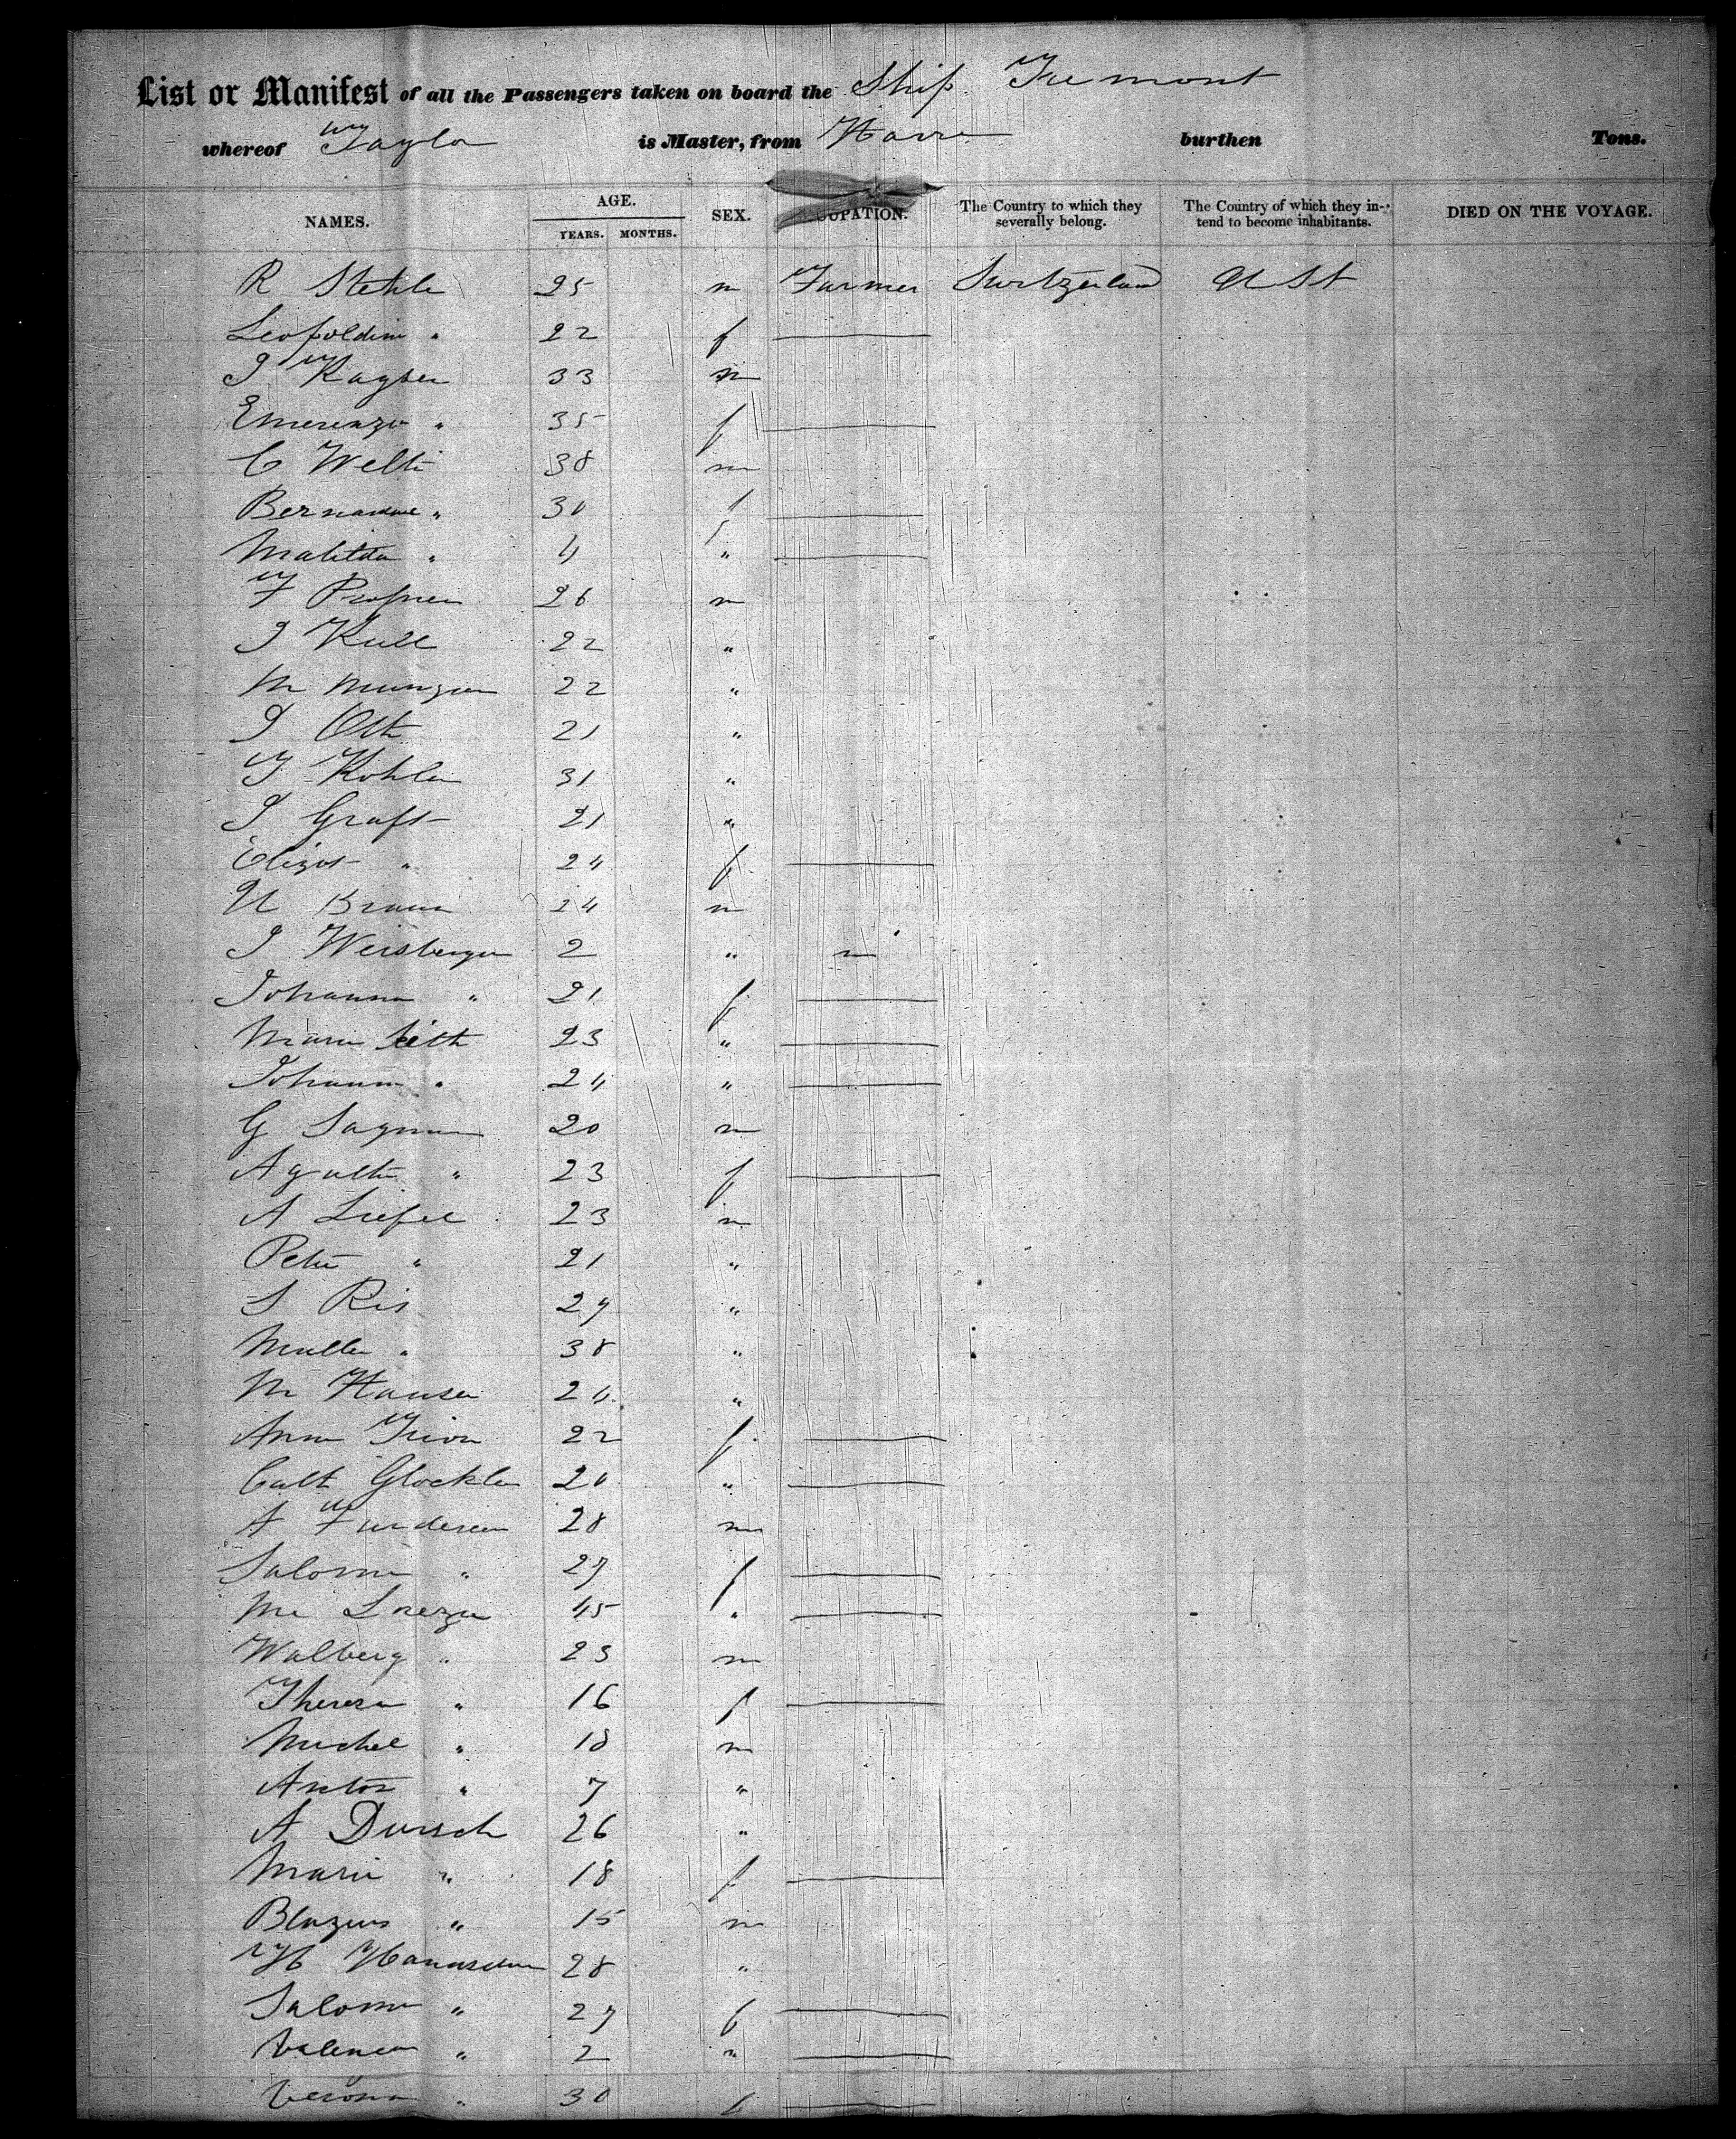 List or Manifest of all the Passengers taken on board the Ship Tremont
whereof Taylor is Master, from Havre burthen Tons.
NAMES. AGE. YEARS. MONTHS. SEX. OCCUPATION. The Country to which they severally belong. The Country of which they intend to become inhabitants. DIED ON THE VOYAGE.
R Stehle 25 m Farmer Switzerland U St
Leopoldine " 22 f
J Kayser 33 m
Emerenzia " 35 f
C Welti 38 m
Bernardine " 30 f
Matilda " 4 "
F 26 m
J Kull 22 "
M 22 "
J Ott 21 "
J Kohler 31 "
J Graft 21 "
Elizat " 24 f
U Braun 24 m
J Weisberger 2 " m
Johanna " 21 f
Maria 23 "
Johanna " 24 "
G 20 m
Agatha " 23 f
A Liefel 23 m
Peter " 21 "
S Ris 29 "
Muller " 38 "
M Hauser 24 "
Anna Trion 22 f
Cath Glockler 20 "
A 28 m
Saloma " 27 f
45 "
Walberg " 23 m
Theresa " 16 f
Michel " 18 m
Anton " 7 "
A Dursch 26 "
Maria " 18 f
Blazius " 15 m
H 28 "
Saloma " 27 f
2 "
Verona " 30 f